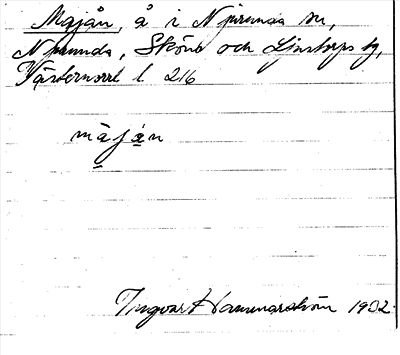 Majån, å i Njurunda sn,
Njurunda, Sköns och Ljustorps tg,
Västernorrl l 216
måján
Ingvar Hammarström 1932